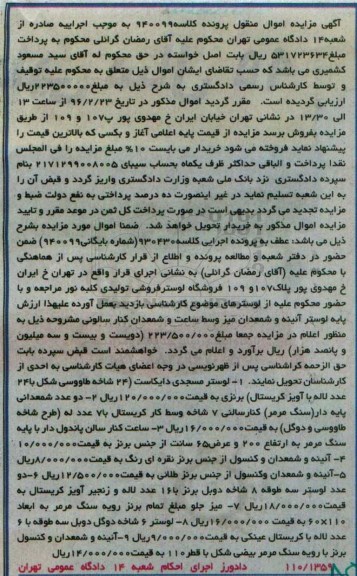 آگهی مزایده اموال منقول پرونده کلاسه۹۴۰۰۹۹ به موجب اجراییه صادره از
شعبه۱۴ دادگاه عمومی تهران محکوم علیه آقای رمضان گرائلی محکوم به پرداخت
مبلغ۵۳۱۷۲۳۶۳۴ ریال بابت اصل خواسته در حق محکوم له آقای سید مسعود
کشمیری می باشد که حسب تقاضای ایشان اموال ذیل متعلق به محکوم علیه توقیف
و توسط کارشناس رسمی دادگستری به شرح ذیل به مبلغ۲۲۳۵۰۰۰۰۰ریال
ارزیابی گردیده است. مقرر گردید اموال مذکور در تاریخ ۹۶/۲/۲۳ از ساعت ۱۳
الی ۱۳/۳۰ در نشانی تهران خیابان ایران خ مهدوی پور پ۱۰۷ و ۱۰۹ از طریق
مزایده بفروش برسد مزایده از قیمت پایه اعلامی آغاز و بکسی که بالاترین قیمت را
پیشنهاد نماید فروخته می شود خریدار می بایست ۱۰% مبلغ مزایده را فی المجلس
نقدا پرداخت و الباقی حداکثر ظرف یکماه بحساب سیبای ۲۱۷۱۲۹۹۰۰۸۰۰۵ بنام
سپرده دادگستری نزد بانک ملی شعبه وزارت دادگستری واریز گردد و قبض آن را
به این شعبه تسلیم نماید در غیر اینصورت ده درصد پرداختی به نفع دولت ضبط و
مزایده تجدید می گردد بدیهی است در صورت پرداخت کل ثمن در موعد مقرر و تایید
مزایده اموال مذکور به خریدار تحویل خواهد شد. ضمنا اموال مورد مزایده بشرح
ذیل می باشد: عطف به پرونده اجرایی کلاسه۹۳۰۴۳۰(شماره بایگانی۹۴۰۰۹۹) ضمن
حضور در دفتر شعبه و مطالعه پرونده و اطلاع از قرار کارشناسی پس از هماهنگی
با محکوم علیه (آقای رمضان گرائلی) به نشانی اجرای قرار واقع در تهران خ ایران
خ مهدوی پور پلاک۱۰۷و ۱۰۹ فروشگاه لوسترفروشی تولیدی کلبه نور مراجعه و با
حضور محکوم علیه از لوسترهای موضوع کارشناسی بازدید بعمل آورده علیهذا ارزش
پایه لوستر آئینه و شمعدان میز وسط ساعت و شمعدان کنار سالونی مشروحه ذیل به
منظور اعلام در مزایده جمعا مبلغ۲۲۳/۵۰۰/۰۰۰ (دویست و بیست و سه میلیون
و پانصد هزار) ریال برآورد و اعلام می گردد. خواهشمند است قبض سپرده بابت
حق الزحمه کارشناسی پس از ظهرنویسی در وجه اعضای هیات کارشناسی به احدی از
کارشناسان تحویل نمایند. ۱- لوستر مسجدی دایکاست (۲۴ شاخه طاووسی شکل با۲۴
عدد لاله با آویز کریستال) برنزی به قیمت۱۲۰/۰۰۰/۰۰۰ریال ۲- دو عدد شمعدانی
پایه دار(سنگ مرمر) کنارسالنی ۷ شاخه وسط کار کریستال با۷ عدد له (طرح شاخه
طاووسی و دوگل) به قیمت۱۶/۰۰۰/۰۰۰ریال ۳- ساعت کنار سالن پاندول دار با پایه
سنگ مرمر به ارتفاع ۲۰۰ و عرض۶۵ سانت از جنس برنز به قیمت۱۰/۰۰۰/۰۰۰
۴- آئینه و شمعدان و کنسول از جنس برنز نقره ای رنگ به قیمت۸/۰۰۰/۰۰۰ریال
۵-آئینه و شمعدان وکنسول از جنس برنز طلائی به قیمت۱۲/۵۰۰/۰۰۰ریال ۶-دو
عدد لوستر سه طوقه ۸ شاخه دوبل برنز با۱۶ عدد لاله و زنجیر آویز کریستال به
قیمت۱۸/۰۰۰/۰۰۰ریال ۷- میز جلو مبلغ تمام برنز رویه سنگ مرمر به ابعاد
۶۰x۱۱۰ به قیمت ۱۶/۰۰۰/۰۰۰ریال ۸- لوستر ۶ شاخه دوگل دوبل سه طوقه با ۶
عدد لاله با کریستال عینکی به قیمت۹/۰۰۰/۰۰۰ریال ۹-آئینه و شمعدان و کنسول
برنز با رویه سنگ مرمر بیضی شکل با قطر۱۱۰ به قیمت۱۴/۰۰۰/۰۰۰ریال
۱۱۰/۱۳۵۹ دادورز اجرای احکام شعبه ۱۴ دادگاه عمومی تهران